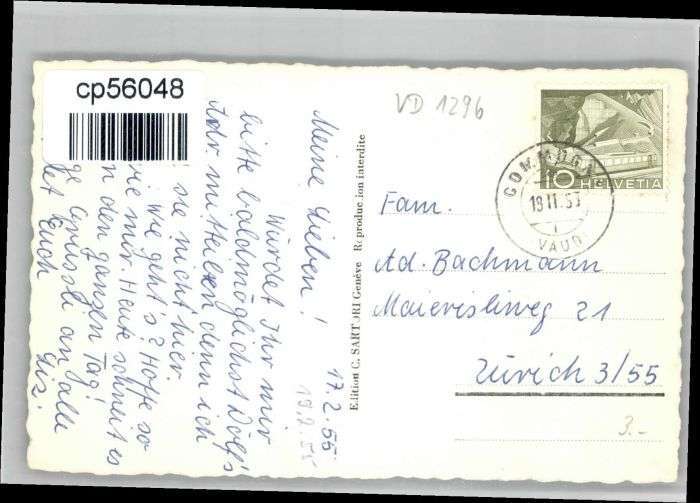 cp56048
VD 1296
17.2.55
19.2.55
Meine Lieben!
Würdet Ihr mir
bitte baldmöglichst Dölf's
Adr. mitteilen denn ich
sie nicht hier.
wie geht's? Hoffe so
wie mir. Heute schneit es
den ganzen Tag!
Grüssli an alle
Euch
Edition C. SARTORI Genève Reproduction interdite
COMMUGNY
18.II.55
VAUD
10 HELVETIA
Fam.
Ad. Bachmann
Maierisliweg 21
Zürich 3/55
3.-